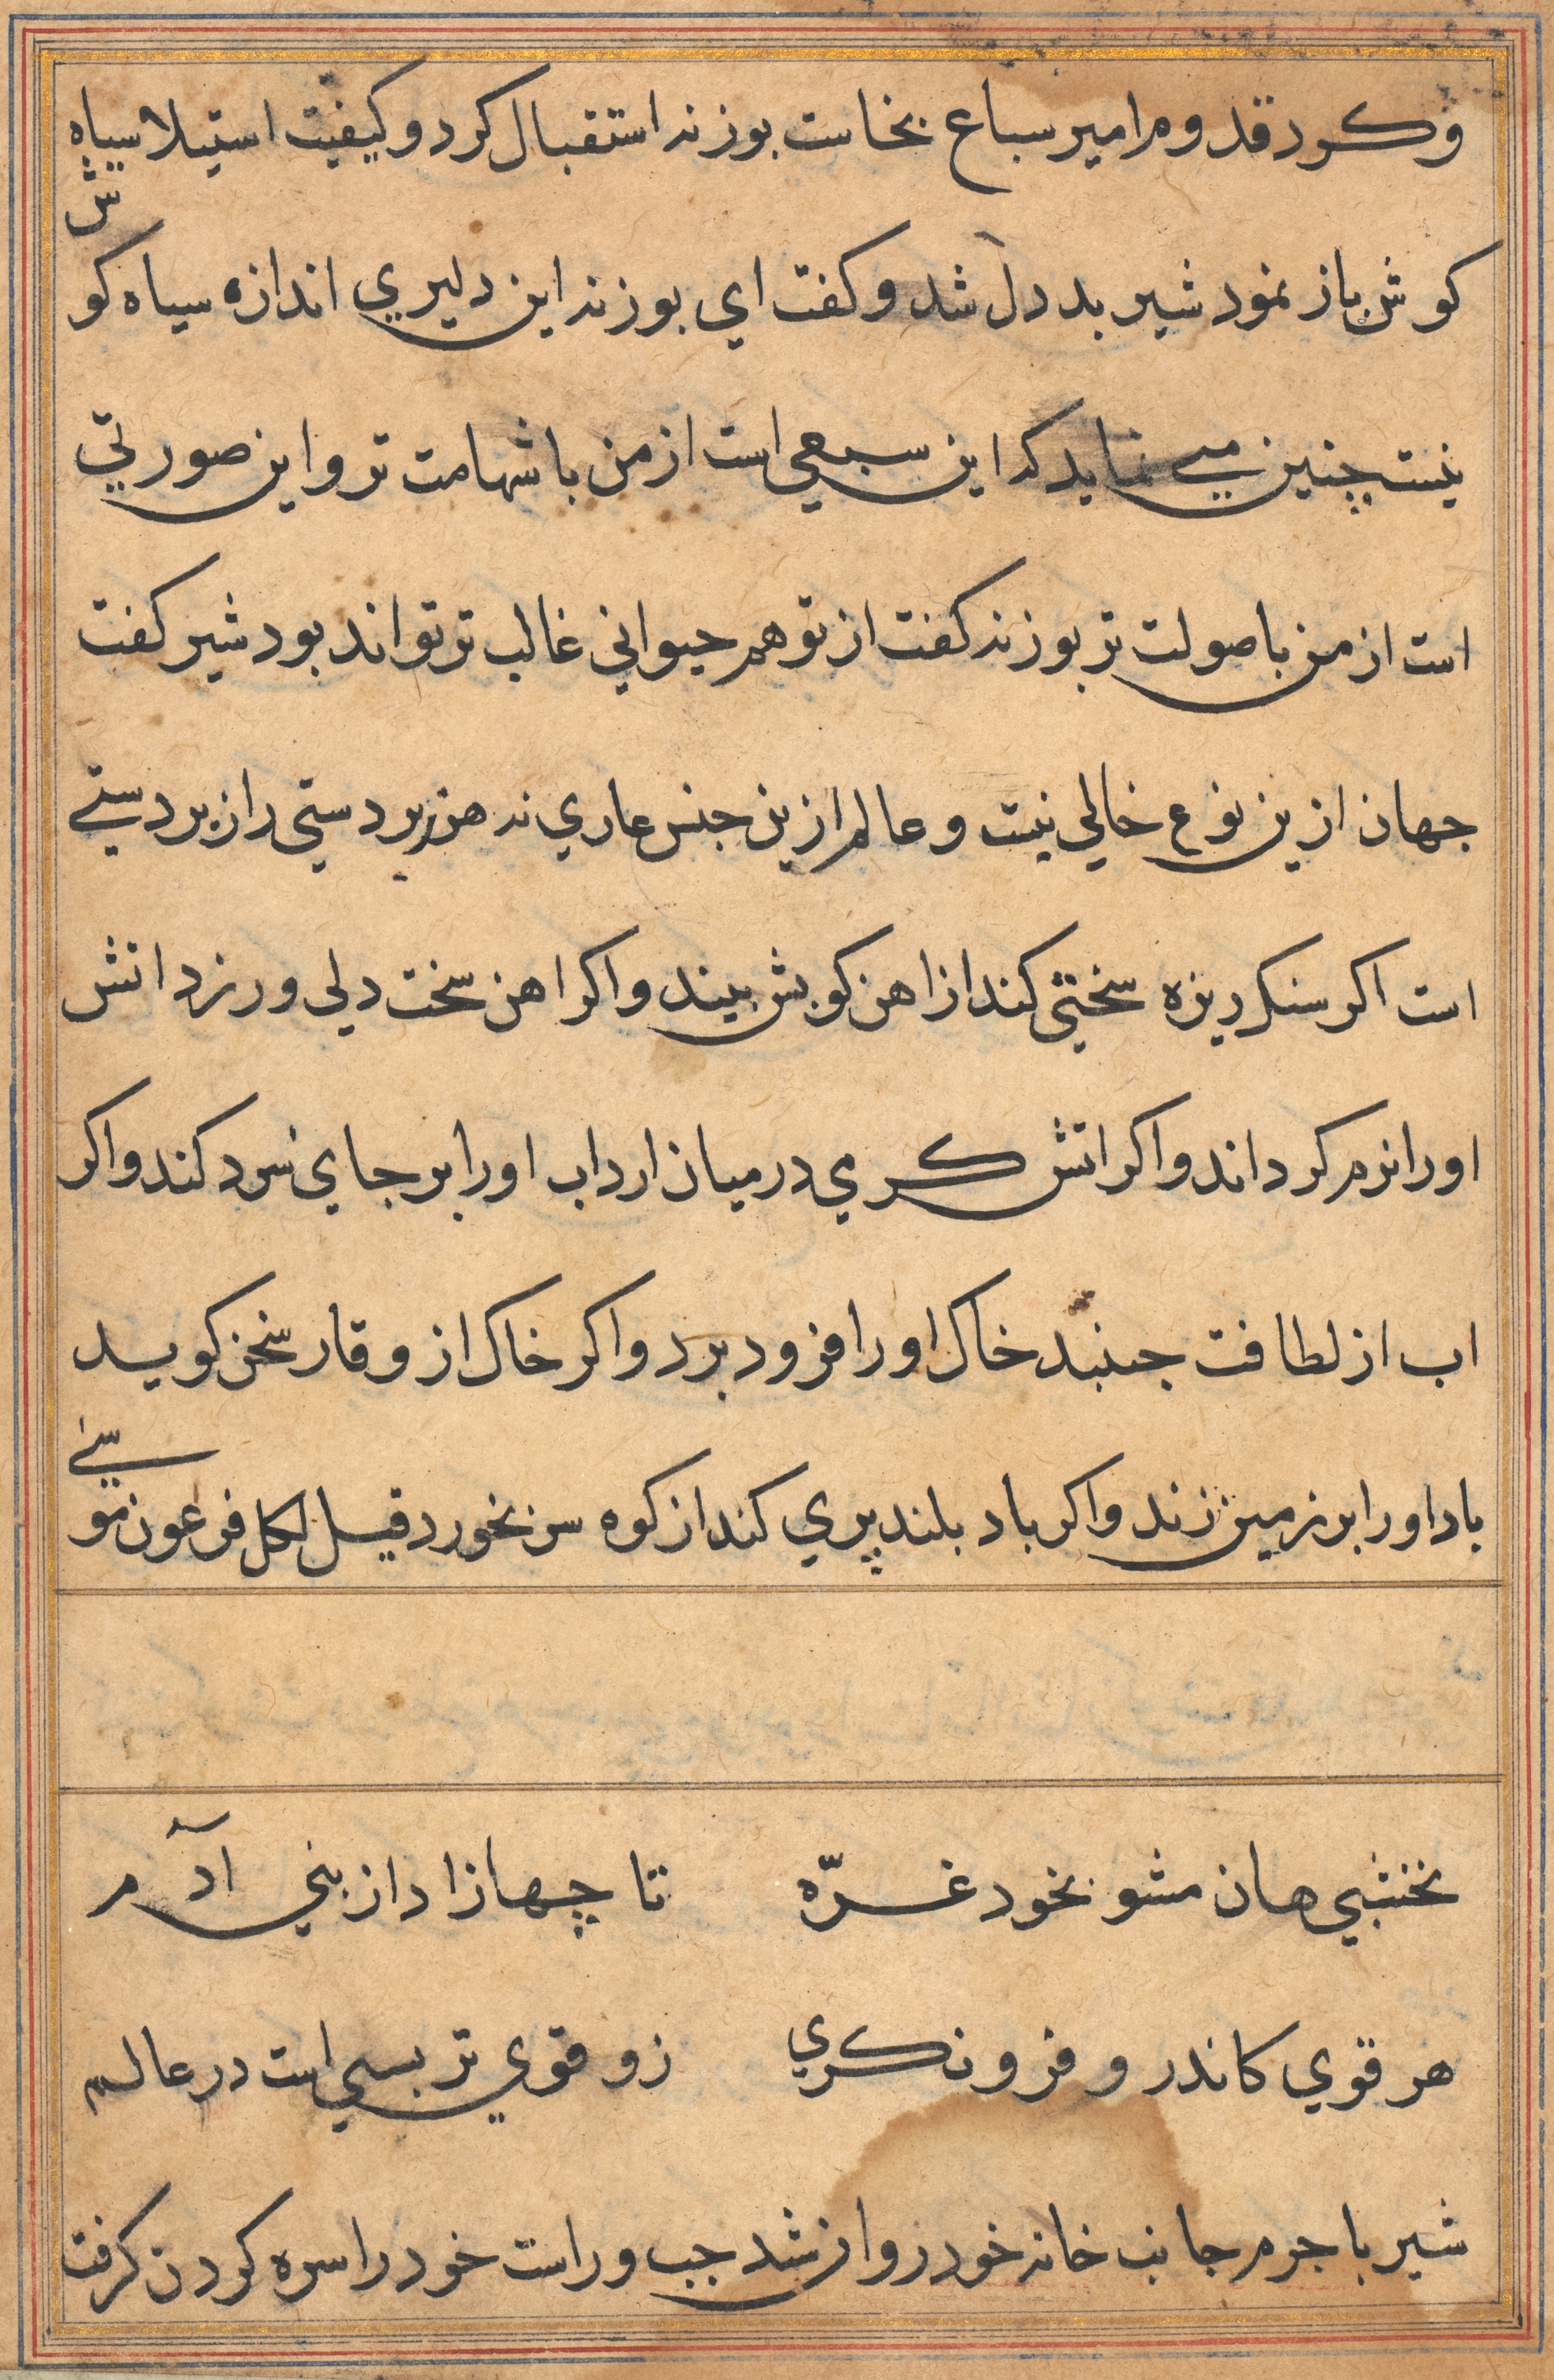 و کرد قدوم امیر سباع بخاست بوزنه استقبال کرد و کیفیت استیلا سیاه
کوش باز نمود شیر بد دل شد و کفت ای بوزنه این دلیری اندازه سیاه کوش
نیست چنین می نماید که این سبعی است از من با شهامت تر و این صورتی
است از من با صولت تر بوزنه کفت از تو هم حیوانی غالب تر تواند بود شیر کفت
جهان ازین نوع خالی نیست و عالم ازین جنس عاری نه هر زبردستی را زبردستی
است اکر سنک ریزه سختیی کند از اهن کوبش بیند و اکر اهن سخت دلی ورزد اتش
اورا نرم کرداند و اکر اتش کرمی در میان ارد اب اورا بر جای سرد کند و اکر
اب از لطافت جنبد خاک اورا فرود برد و اکر خاک از وقار سخن کوید
باد اورا بر زمین زند و اکر باد بلند پری کند از کوه سر بخورد قیل لکل فرعون موسی
نخشبی هان مشو بخود غرّه
تا چها زاد از بنی آدم
هر قوی کاندرو فرو نکری
زو قوی تر بسی است در عالم
شیر با جرم جانب خانه خود روان شد چپ و راست خود را سره کردن کرفت